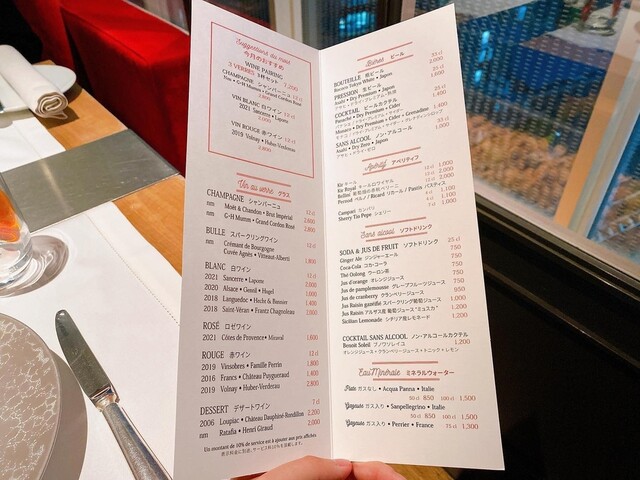 Suggestions du mois
今月のおすすめ
WINE PAIRING
3 VERRES 3杯セット 7,200
CHAMPAGNE シャンパーニュ 12 cl
nm • G-H Mumm • Grand Cordon Rosé
VIN BLANC 白ワイン 12 cl
2021 Sancerre • Laporte
VIN ROUGE 赤ワイン 12 cl
2019 Volnay • Huber-Verdereau
2,800
Vin au verre グラス
CHAMPAGNE シャンパーニュ 12 cl
nm Moët & Chandon • Brut Impérial 2,600
nm G-H Mumm • Grand Cordon Rosé 2,800
BULLE スパークリングワイン 12 cl
nm Crémant de Bourgogne
Cuvée Agnès • Vitteaut-Alberti 1,800
BLANC 白ワイン 12 cl
2021 Sancerre • Laporte
2020 Alsace • Gentil • Hugel
2018 Languedoc • Hecht & Bannier 1,400
2018 Saint-Véran • Frantz Chagnoleau
ROSÉ ロゼワイン
2021 Côtes de Provence • Miraval 1,600
ROUGE 赤ワイン 12 cl
2019 Vinsobres • Famille Perrin 1,800
2016 Francs • Château Puygueraud 1,400
2019 Volnay • Huber-Verdereau 2,800
DESSERT デザートワイン 7 cl
2006 Loupiac • Château Dauphiné-Rondillon 2,200
nm Ratafia • Henri Giraud 2,000
Un montant de 10% de service est à ajouter aux prix affichés
表示料金に別途、サービス料10%を頂戴します。
Bières ビール
BOUTEILLE 瓶ビール 33 cl
Baeren Tokyo White • Japon 2,000
PRESSION 生ビール 25 cl
Asahi • Dry Premium • Japon 1,600
COCKTAIL ビールカクテル 25 cl
Panaché • Dry Premium • Cider 1,400
Monaco • Dry Premium • Cider • Grenadine 1,400
SANS ALCOOL ノン・アルコール 33 cl
Asahi • Dry Zero • Japon 1,000
アサヒ・ドライ・ゼロ
Apéritif アペリティフ
Kir キール
Kir Royal キールロワイヤル
Bellini 葡萄畑の赤桃ベリーニ
Pernod ペルノ / Ricard リカール / Pastis パスティス
Campari カンパリ 1,100
Sherry Tio Pepe シェリー 1,000
Sans alcool ソフトドリンク
SODA & JUS DE FRUIT ソフトドリンク 25 cl
Ginger Ale ジンジャーエール 750
Coca-Cola コカ・コーラ 750
Thé Oolong ウーロン茶 750
Jus d'orange オレンジジュース 750
Jus de pamplemousse グレープフルーツジュース 750
Jus de cranberry クランベリージュース 750
Jus Raisin gazéifié スパークリング葡萄ジュース 950
Jus Raisin アルザス産 葡萄ジュース "ミュスカ" 1,000
Sicilian Lemonade シチリア産レモネード 1,200
COCKTAIL SANS ALCOOL ノン・アルコールカクテル
Benoit Soleil ブノワソレイユ 1,200
オレンジジュース・クランベリージュース・トニック・レモン
Eau Minérale ミネラルウォーター
Plate ガスなし • Acqua Panna • Italie
50 cl 850 100 cl 1,500
Gazeuse ガス入り • Sanpellegrino • Italie
50 cl 850 100 cl 1,500
Gazeuse ガス入り • Perrier • France 75 cl 1,300